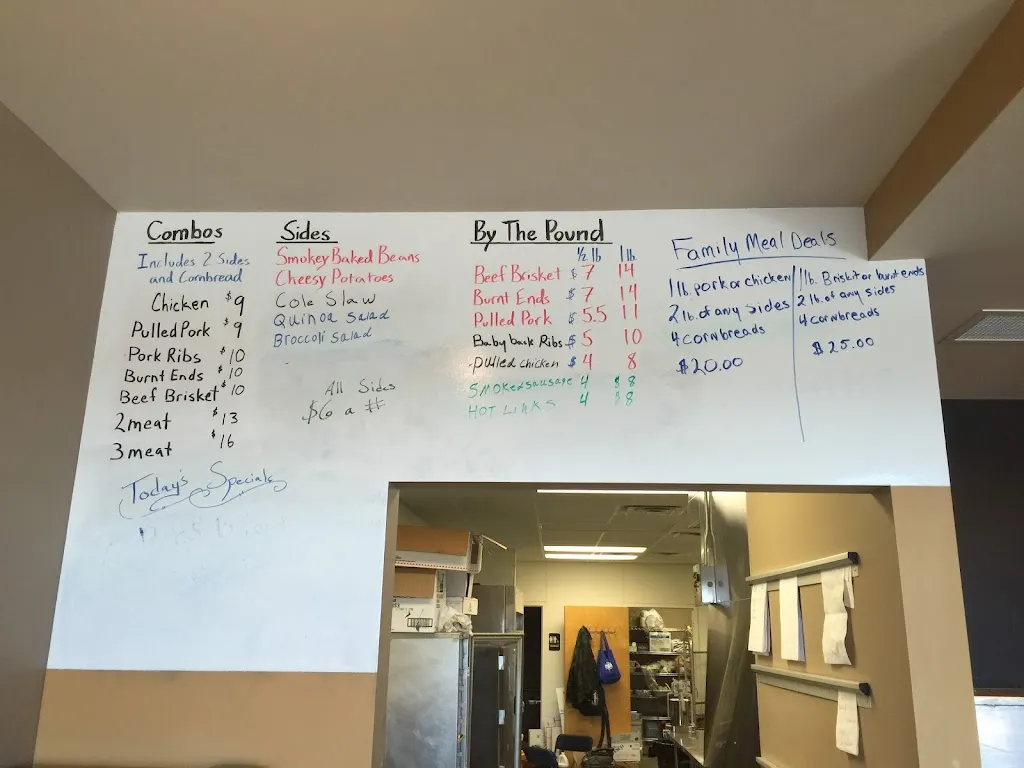 Combos
Includes 2 Sides
and Cornbread
Chicken $9
Pulled Pork $9
Pork Ribs $10
Burnt Ends $10
Beef Brisket $10
2 meat $13
3 meat $16
Today's Specials
Sides
Smokey Baked Beans
Cheesy Potatoes
Cole Slaw
Quinoa Salad
Broccoli Salad
All Sides
$6 a #
By The Pound
½ lb 1 lb
Beef Brisket $7 14
Burnt Ends $7 14
Pulled Pork $5.5 11
Baby back Ribs $5 10
pulled chicken $4 8
Smoked sausage 4 $8
HOT LINKS 4 $8
Family Meal Deals
1 lb. pork or chicken
2 lb. of any sides
4 cornbreads
$20.00
1 lb. Briskit or burnt ends
2 lb. of any sides
4 cornbreads
$25.00